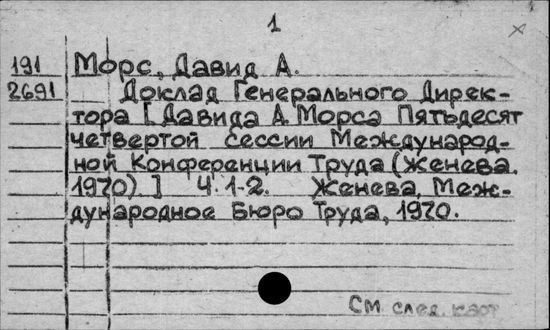 1
191 Морс, Давид А.
2691 Доклад Генерального Дирек-
тора [Давида А. Морса Пятьдесят
четвертой сессии Международ-
ной Конференции Труда (Женева.
1970).] Ч. 1-2. Женева, Меж-
дународное Бюро Труда, 1970.
См. след. карт